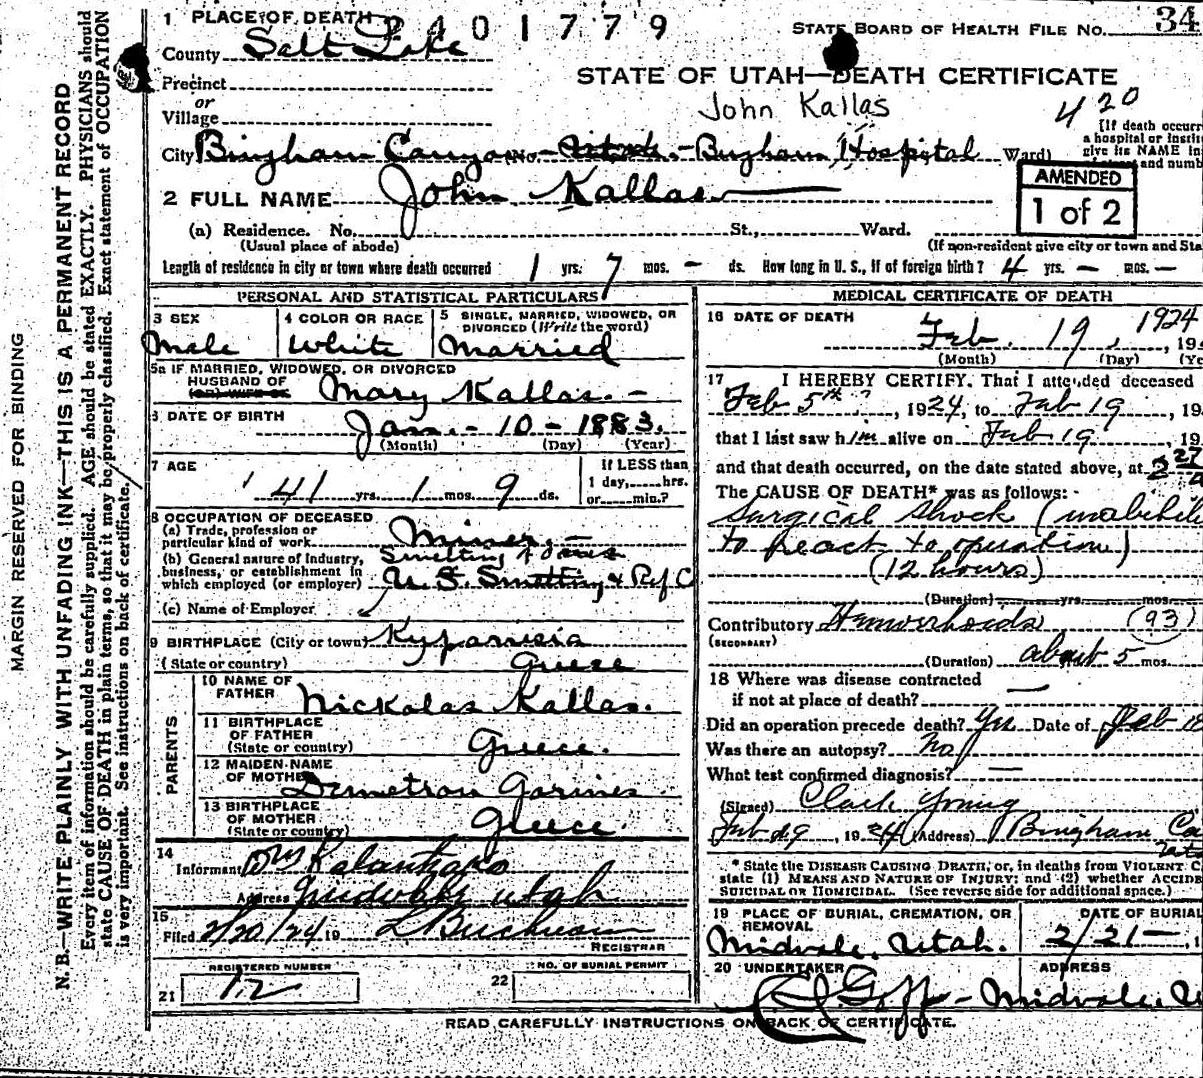 1 PLACE OF DEATH 2401779 STATE BOARD OF HEALTH FILE No. 34
County Salt Lake
STATE OF UTAH—DEATH CERTIFICATE
Precinct
or
John Kallas 420
Village
[If death occurr
a hospital or instit
City Bingham Canyon No. Utah - Bingham Hospital Ward) give its NAME in
and numb
AMENDED
1 of 2
2 FULL NAME John Kallas
(a) Residence. No. St., Ward.
(Usual place of abode) (If non-resident give city or town and Sta
Length of residence in city or town where death occurred 1 yrs. 7 mos. - ds. How long in U. S., if of foreign birth? 4 yrs. - mos. -
PERSONAL AND STATISTICAL PARTICULARS
3 SEX
Male
4 COLOR OR RACE
White
5 SINGLE, MARRIED, WIDOWED, OR
DIVORCED (Write the word)
Married
5a IF MARRIED, WIDOWED, OR DIVORCED
HUSBAND OF
(or) WIFE OF
Mary Kallas.-
6 DATE OF BIRTH
Jan. - 10 - 1883.
(Month) (Day) (Year)
7 AGE
41 yrs. 1 mos. 9 ds.
If LESS than
1 day, hrs.
or min.?
8 OCCUPATION OF DECEASED
(a) Trade, profession or
particular kind of work Miner.-
(b) General nature of industry,
business, or establishment in
which employed (or employer)
Smelting
U. S. Smelting & Ref C
(c) Name of Employer
9 BIRTHPLACE (City or town) Kyparissia
(State or country) Greece
PARENTS
10 NAME OF
FATHER Nickolas Kallas.
11 BIRTHPLACE
OF FATHER
(State or country) Greece.
12 MAIDEN NAME
OF MOTHER Demetrou Garines
13 BIRTHPLACE
OF MOTHER
(State or country) Greece.
14
Informant
Address Midvale Utah
15
Filed 2/20/24 19
REGISTRAR
REGISTERED NUMBER
21 12
NO. OF BURIAL PERMIT
22
MEDICAL CERTIFICATE OF DEATH
16 DATE OF DEATH
Feb. 19, 1924, 19
(Month) (Day) (Ye
17 I HEREBY CERTIFY, That I attended deceased
Feb 5th, 1924, to Feb 19, 19
that I last saw him alive on Feb 19, 19
and that death occurred, on the date stated above, at 2 27
The CAUSE OF DEATH* was as follows:
Surgical Shock (inability
to react to operation)
(12 hours)
(Duration) yrs. mos.
Contributory Hemorrhoids (93)
(SECONDARY)
(Duration) about 5 mos.
18 Where was disease contracted
if not at place of death? —
Did an operation precede death? Yes Date of Feb 1
Was there an autopsy? No
What test confirmed diagnosis? —
(Signed) Clark Young
Feb 19, 1924 (Address) Bingham Ca
* State the DISEASE CAUSING DEATH, or, in deaths from VIOLENT C
state (1) MEANS AND NATURE OF INJURY; and (2) whether ACCIDE
SUICIDAL OR HOMICIDAL. (See reverse side for additional space.)
19 PLACE OF BURIAL, CREMATION, OR
REMOVAL
Midvale, Utah.
DATE OF BURIA
2/21—
20 UNDERTAKER
Goff -
ADDRESS
Midvale, U
READ CAREFULLY INSTRUCTIONS ON BACK OF CERTIFICATE.
MARGIN RESERVED FOR BINDING
N. B.—WRITE PLAINLY WITH UNFADING INK—THIS IS A PERMANENT RECORD
Every item of information should be carefully supplied. AGE should be stated EXACTLY. PHYSICIANS should
state CAUSE OF DEATH in plain terms, so that it may be properly classified. Exact statement of OCCUPATION
is very important. See instructions on back of certificate.